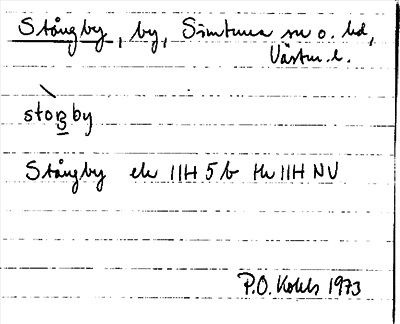 Stångby, by, Simtuna sn o. hd,
Västm. l.
stoŋby
Stångby ek 11H 5b tk 11H NV
P.O. Kolels 1973